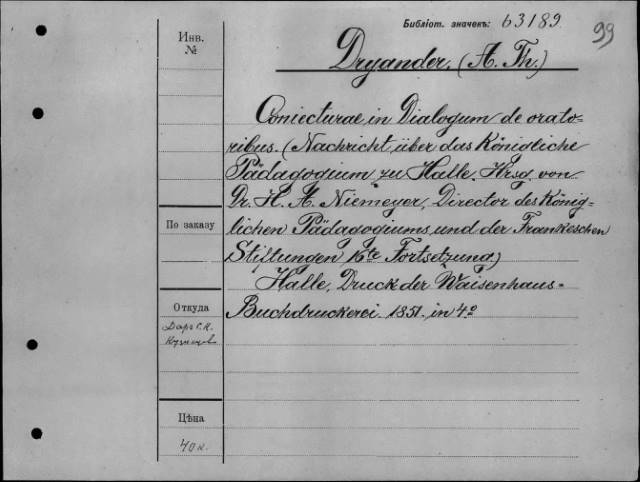 Библіот. значекъ: 63189
99
Инв.
№
Dryander, (A. Th.)
Coniecturae in Dialogum de orato-
ribus. (Nachricht über das Königliche
Pädagogium zu Halle. Hrsg. von
Dr. H. A. Niemeyer, Director des König-
lichen Pädagogiums und der Frankeschen
Stiftungen 16te Fortsetzung)
Halle, Druck der Waisenhaus-
Buchdruckerei. 1851. in 4º
По заказу
Откуда
Даръ С. К.
Кузнецов
Цѣна
40 к.